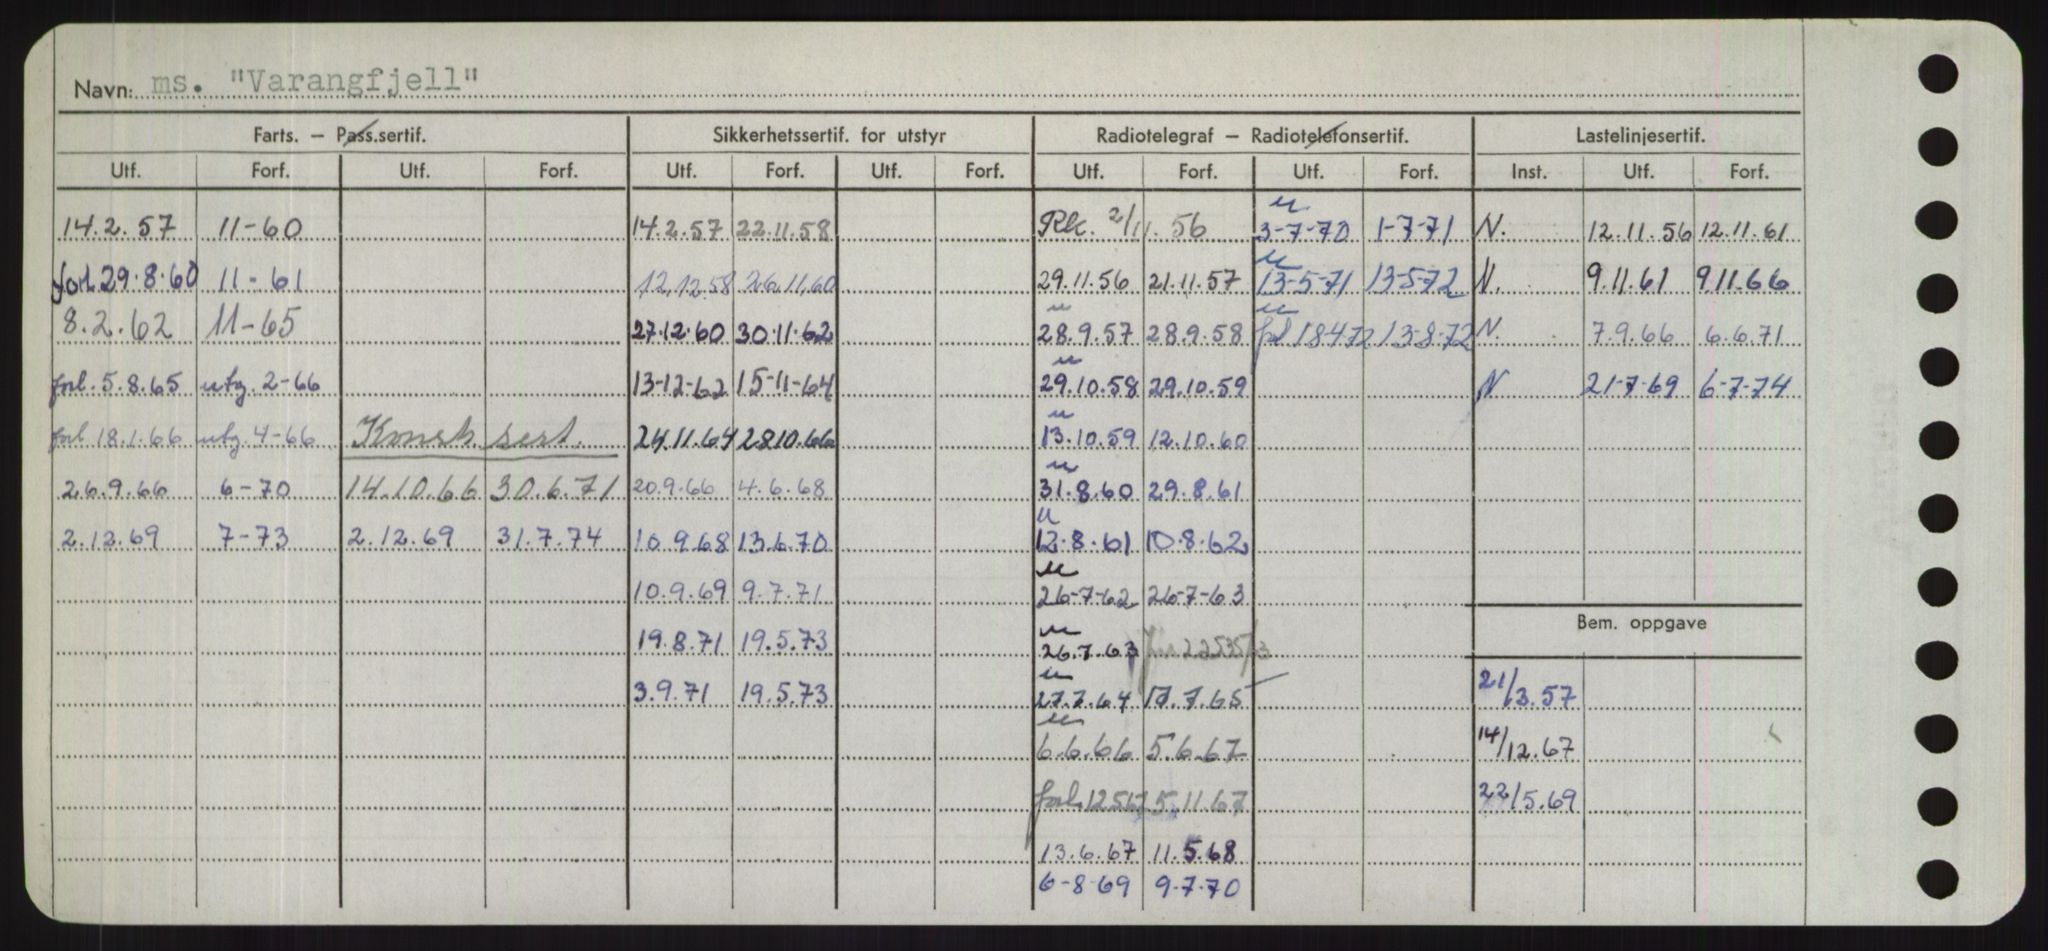 Navn: ms. "Varangfjell"
Farts. – Pass.sertif. Sikkerhetssertif. for utstyr Radiotelegraf – Radiotelefonsertif. Lastelinjesertif.
Utf. Forf. Utf. Forf. Utf. Forf. Utf. Forf. Utf. Forf. Utf. Forf. Inst. Utf. Forf.
14.2.57 11-60 14.2.57 22.11.58 Rk. 2/11.56 u 3-7-70 1-7-71 N. 12.11.56 12.11.61
forl. 29.8.60 11-61 12.12.58 26.11.60 29.11.56 21.11.57 u 13-5-71 13-5-72 N. 9.11.61 9.11.66
8.2.62 11-65 27.12.60 30.11.62 u 28.9.57 28.9.58 u forl 18472 13-8-72 N. 7.9.66 6.6.71
forl. 5.8.65 utg. 2-66 13-12-62 15-11-64 u 29.10.58 29.10.59 N 21-7-69 6-7-74
forl. 18.1.66 utg. 4-66 Konstr. sert. 24.11.64 28.10.66 u 13.10.59 12.10.60
26.9.66 6-70 14.10.66 30.6.71 20.9.66 4.6.68 u 31.8.60 29.8.61
2.12.69 7-73 2.12.69 31.7.74 10.9.68 13.6.70 u 12.8.61 10.8.62
10.9.69 9.7.71 u 26-7-62 26-7-63
Bem. oppgave
19.8.71 19.5.73 u 26.7.63
3.9.71 19.5.73 u 27.7.64 17.7.65 21/3.57
u 6.6.66 5.6.67 14/12.67
forl. 12567 5.11.67 22/5.69
13.6.67 11.5.68
6-8-69 9.7.70